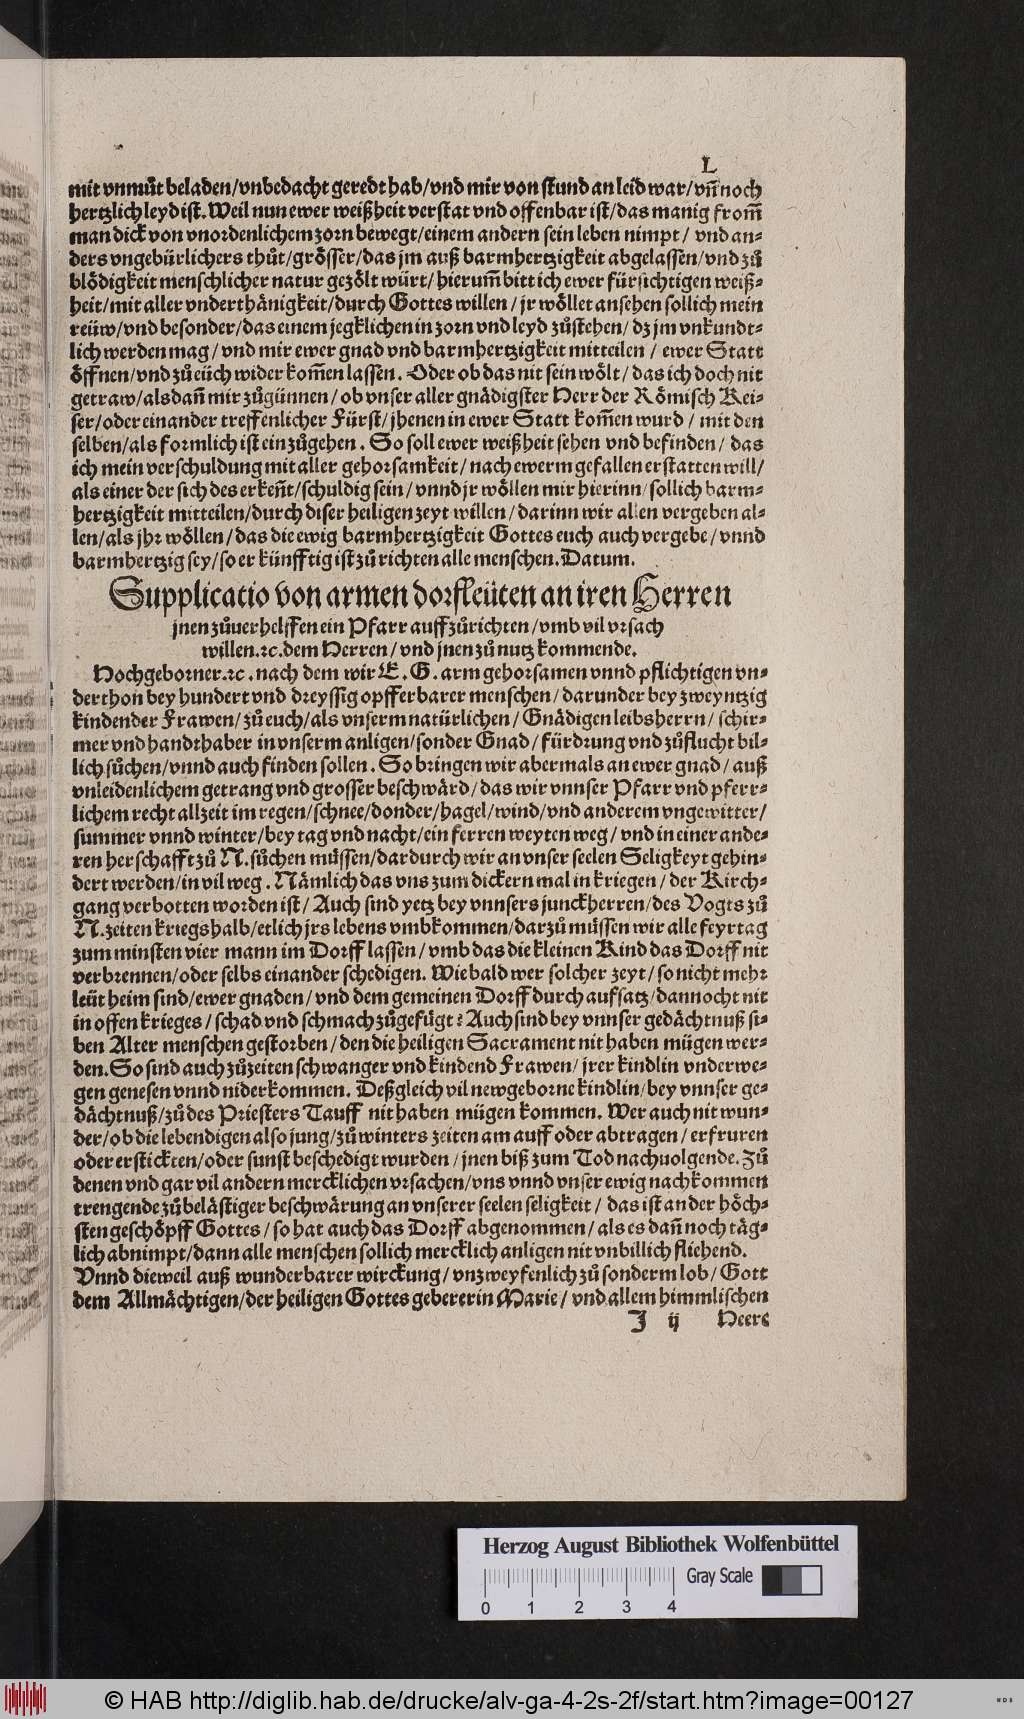 L
mit vnmůt beladen/vnbedacht geredt hab/vnd mir von stund an leid war/vñ noch
hertzlich leyd ist. Weil nun ewer weißheit verstat vnd offenbar ist/das manig from̃
man dick von vnordenlichem zorn bewegt/einem andern sein leben nimpt/ vnd an⸗
ders vngebürlichers thůt/grösser/das jm auß barmhertzigkeit abgelassen/vnd zů
blödigkeit menschlicher natur gezölt würt/hierum̃ bitt ich ewer fürsichtigen weiß⸗
heit/mit aller vnderthänigkeit/durch Gottes willen/jr wöllet ansehen sollich mein
reüw/vnd besonder/das einem jegklichen in zorn vnd leyd zůstehen/dz jm vnkundt⸗
lich werden mag/vnd mir ewer gnad vnd barmhertzigkeit mitteilen/ ewer Statt
öffnen/vnd zů eüch wider kom̃en lassen. Oder ob das nit sein wölt/das ich doch nit
getraw/als dañ mir zůgünnen/ob vnser aller gnädigster Herr der Römisch Kei⸗
ser/oder ein ander treffenlicher Fürst/jhenen in ewer Statt kom̃en wurd/ mit den
selben/als formlich ist ein zůgehen. So soll ewer weißheit sehen vnd befinden/ das
ich mein verschuldung mit aller gehorsamkeit/nach ewerm gefallen erstatten will/
als einer der sich des erkeñt/schuldig sein/vnnd jr wöllen mir hierinn/sollich barm⸗
hertzigkeit mitteilen/durch diser heiligen zeyt willen/darinn wir allen vergeben al⸗
len/als jhr wöllen/das die ewig barmhertzigkeit Gottes euch auch vergebe/vnnd
barmhertzig sey/so er künfftig ist zů richten alle menschen. Datum.
Supplicatio von armen dorfleüten an iren Herren
jnen zůuerhelffen ein Pfarr auffzůrichten/vmb vil vrsach
willen.ꝛc.dem Herren/vnd jnen zů nutz kommende.
Hochgeborner.ꝛc. nach dem wir E. G. arm gehorsamen vnnd pflichtigen vn⸗
derthon bey hundert vnd dreyssig opfferbarer menschen/darunder bey zweyntzig
kindender Frawen/zů euch/als vnserm natürlichen/Gnädigen leibsherrn/ schir⸗
mer vnd handthaber in vnserm anligen/sonder Gnad/fürdrung vnd zůflucht bil⸗
lich sůchen/vnnd auch finden sollen. So bringen wir abermals an ewer gnad/ auß
vnleidenlichem getrang vnd grosser beschwärd/das wir vnnser Pfarr vnd pferr⸗
lichem recht allzeit im regen/schnee/donder/hagel/wind/vnd anderem vngewitter/
summer vnnd winter/bey tag vnd nacht/ein ferren weyten weg/ vnd in einer ande⸗
ren herschafft zů N. sůchen müssen/dardurch wir an vnser seelen Seligkeyt gehin⸗
dert werden/in vil weg. Nämlich das vns zum dickern mal in kriegen/der Kirch⸗
gang verbotten worden ist/Auch sind yetz bey vnnsers junckherren/des Vogts zů
N. zeiten kriegshalb/etlich jrs lebens vmbkommen/darzů müssen wir alle feyrtag
zum minsten vier mann im Dorff lassen/ vmb das die kleinen Kind das Dorff nit
verbrennen/oder selbs einander schedigen. Wie bald wer solcher zeyt/so nicht mehr
leüt heim sind/ewer gnaden/vnd dem gemeinen Dorff durch aufsatz/dannocht nit
in offen krieges/schad vnd schmach zůgefügt? Auch sind bey vnnser gedächtnuß si⸗
ben Alter menschen gestorben/den die heiligen Sacrament nit haben mügen wer⸗
den. So sind auch zůzeiten schwanger vnd kindend Frawen/jrer kindlin vnderwe⸗
gen genesen vnnd niderkommen. Deßgleich vil newgeborne kindlin/bey vnnser ge⸗
dächtnuß/zů des Priesters Tauff nit haben mügen kommen. Wer auch nit wun⸗
der/ob die lebendigen also jung/zů winters zeiten am auff oder abtragen/ erfruren
oder erstickten/oder sunst beschedigt wurden/jnen biß zum Tod nachuolgende. Zů
denen vnd gar vil andern mercklichen vrsachen/vns vnnd vnser ewig nachkommen
trengende zů belästiger beschwärung an vnserer seelen seligkeit/ das ist an der höch⸗
sten geschöpff Gottes/so hat auch das Dorff abgenommen/als es dañ noch täg⸗
lich abnimpt/dann alle menschen sollich mercklich anligen nit vnbillich fliehend.
Vnnd dieweil auß wunderbarer wirckung/vnzweyfenlich zů sonderm lob/Gott
dem Allmächtigen/der heiligen Gottes gebererin Marie/ vnd allem himmlischen
J ij Heere
Herzog August Bibliothek Wolfenbüttel
Gray Scale
0 1 2 3 4
© HAB http://diglib.hab.de/drucke/alv-ga-4-2s-2f/start.htm?image=00127